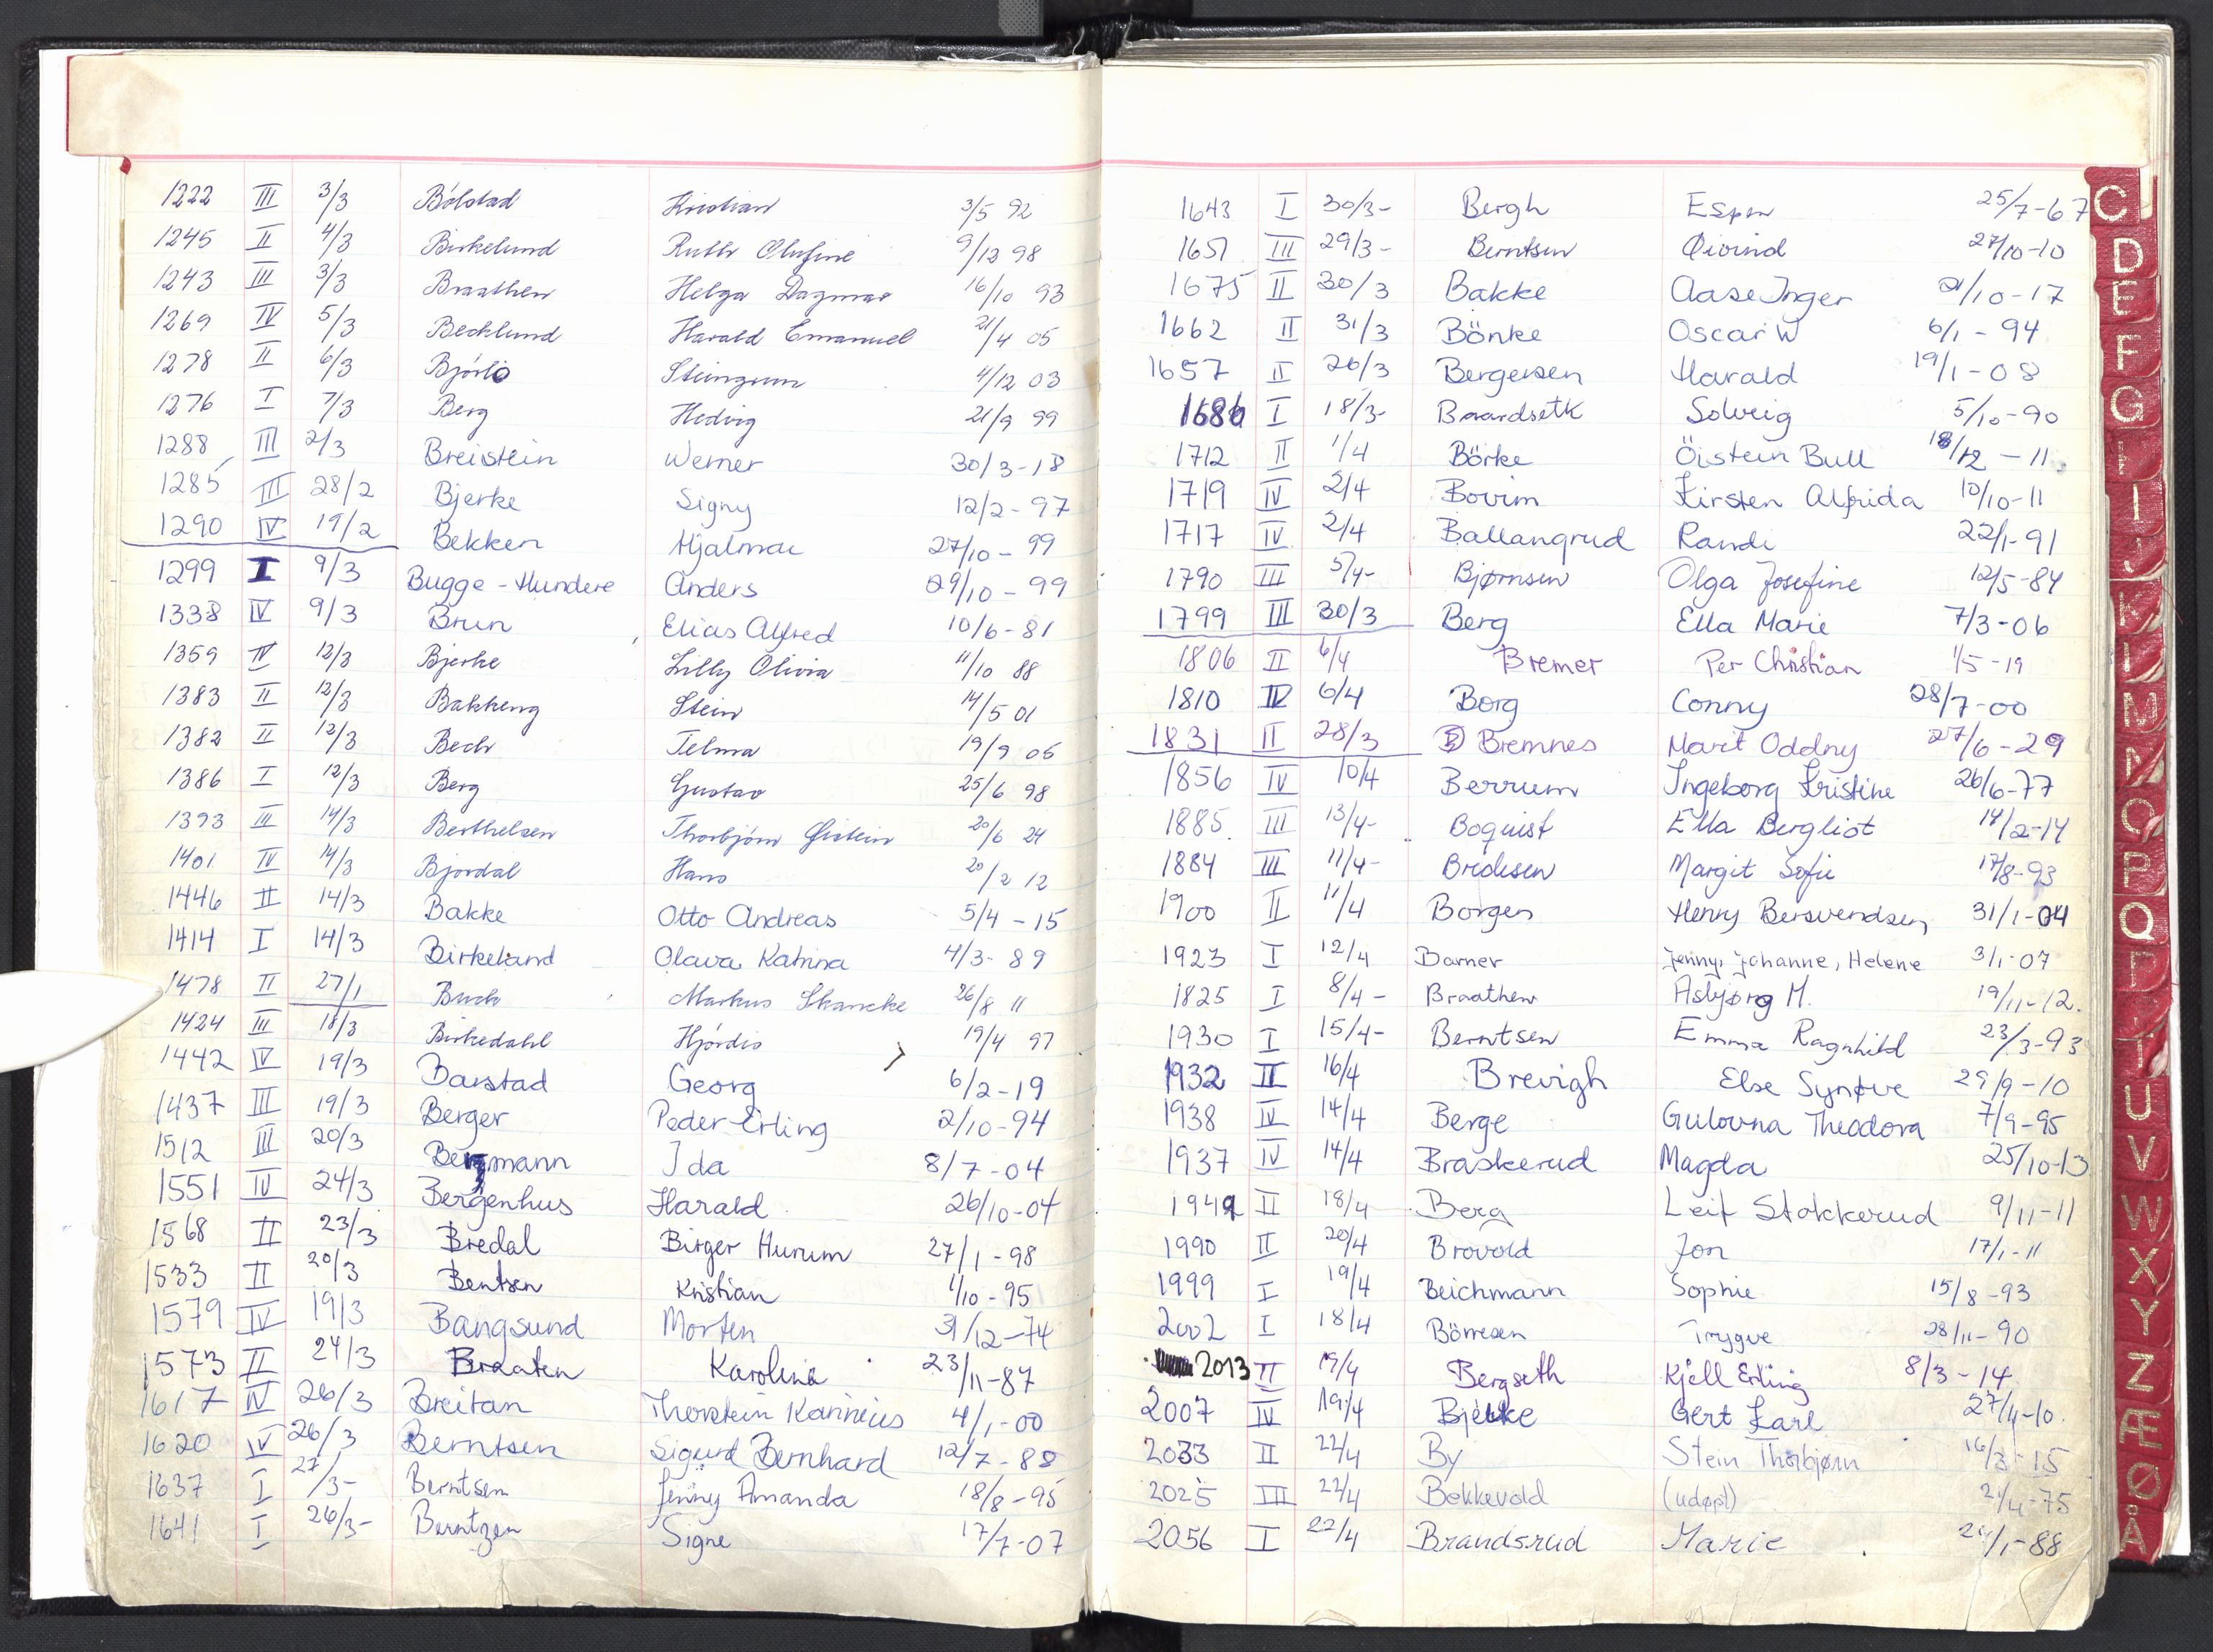 1222 III 3/3 Bölstad Kristian 3/5 92
1245 II 4/3 Birkelund Ruth Olufine 9/12 98
1243 III 3/3 Braathen Helga Dagmar 16/10 93
1269 IV 5/3 Becklund Harald Emanuel 21/4 05
1278 II 6/3 Björlo Steingrim 4/12 03
1276 I 7/3 Berg Hedvig 21/9 99
1288 III 2/3 Breistein Werner 30/3-18
1285 III 28/2 Bjerke Signy 12/2-97
1290 IV 19/2 Bekken Hjalmar 27/10-99
1299 I 9/3 Bugge-Hundere Anders 29/10-99
1338 IV 9/3 Brun Elias Alfred 10/6-81
1359 IV 12/3 Bjerke Lilly Olivia 11/10 88
1383 II 12/3 Bakkeng Stein 14/5 01
1382 II 12/3 Bech Telma 19/9 05
1386 I 12/3 Berg Gustav 25/6 98
1393 III 14/3 Berthelsen Thorbjörn Øistein 20/6 24
1401 IV 14/3 Bjordal Hans 20/2 12
1446 II 14/3 Bakke Otto Andreas 5/4-15
1414 I 14/3 Birkeland Olava Katrina 4/3-89
1478 II 27/1 Buck Markus Skancke 26/8 11
1424 III 18/3 Birkedahl Hjördis 19/4 97
1442 IV 19/3 Barstad Georg 6/2-19
1437 III 19/3 Berger Peder Erling 2/10-94
1512 III 20/3 Bergmann Ida 8/7-04
1551 IV 24/3 Bergenhus Harald 26/10-04
1568 II 23/3 Bredal Birger Hurum 27/1-98
1533 II 20/3 Bentsen Kristian 1/10-95
1579 IV 19/3 Bangsund Morten 31/12-74
1573 II 24/3 Braaten Karoline 23/11-87
1617 IV 26/3 Breitan Thorstein Kornelius 4/1-00
1620 IV 26/3 Berntsen Sigurd Bernhard 12/7-88
1637 I 27/3- Berntsen Jenny Amanda 18/8-95
1641 I 26/3- Berntzen Signe 17/7-07
1643 I 30/3- Bergh Espen 25/7-67
1651 III 29/3- Berntsen Øivind 27/10-10
1675 II 30/3 Bakke Aase Inger 21/10-17
1662 II 31/3 Bönke Oscar W 6/1-94
1657 II 26/3 Bergersen Harald 19/1-08
1686 I 18/3- Baardseth Solveig 5/10-90
1712 II 1/4 Börke Öistein Bull 18/12-11
1719 IV 2/4 Bovim Kirsten Alfrida 10/10-11
1717 IV 2/4 Ballangrud Randi 22/1-91
1790 III 5/4- Bjørnsen Olga Josefine 12/5-84
1799 III 30/3 Berg Ella Marie 7/3-06
1806 II 6/4 Bremer Per Christian 1/5-19
1810 IV 6/4 Borg Conny 28/7-00
1831 II 28/3 Bremnes Marit Oddny 27/6-29
1856 IV 10/4 Berrum Ingeborg Kristine 26/6-77
1885 III 13/4- Boquist Ella Bergliot 14/2-14
1884 III 11/4- Bridesen Margit Sofie 17/8-93
1900 II 11/4 Borgen Henry Bersvendsen 31/1-04
1923 I 12/4 Barner Jenny, Johanne, Helene 3/1-07
1825 I 8/4- Braathen Asbjørg M. 19/11-12.
1930 I 15/4- Berntsen Emma Ragnhild 23/3-93
1932 II 16/4 Brevigh Else Synøve 29/9-10
1938 IV 14/4 Berge Gulovna Theodora 7/9-95
1937 IV 14/4 Braskerud Magda 25/10-13
1949 II 18/4 Berg Leif Stokkerud 9/11-11
1990 II 20/4 Brovold Jon 17/1-11
1999 I 19/4 Beichmann Sophie 15/8-93
2002 I 18/4 Börresen Trygve 28/11-90
2013 II 19/4 Bergseth Kjell Erling 8/3-14
2007 IV 19/4 Bjerke Gert Karl 27/4-10.
2033 II 22/4 By Stein Thorbjørn 16/3-15
2025 III 22/4 Bekkevold (udøpt) 21/4-75
2056 I 22/4 Brandsrud Marie 24/1-88
C
D
E
F
G
H
I
J
K
L
M
N
O
P
Q
R
S
T
U
V
W
X
Y
Z
Æ
Ø
Å